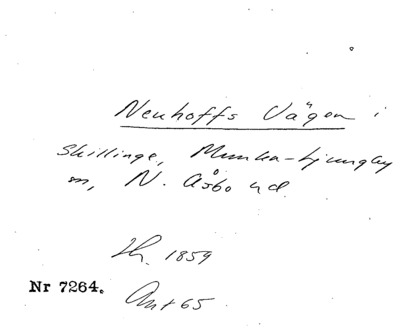 Neuhoffs Vägen i
Skillinge, Munka-Ljungby
sn, N. Åsbo hd.
1859
Nr 7264.
Ant 65.